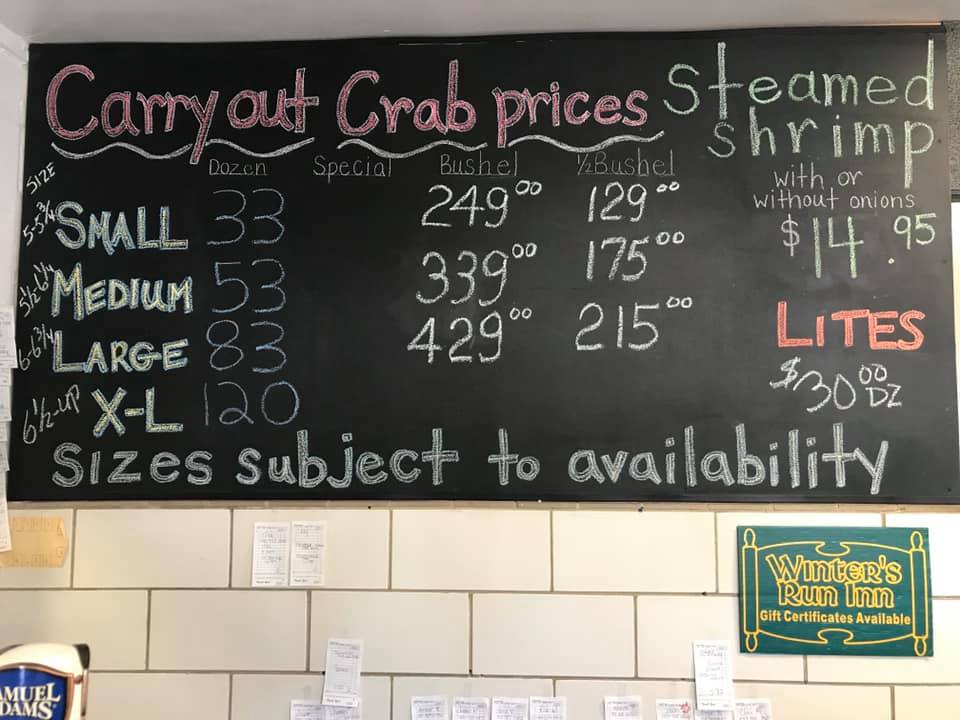 Carry out Crab prices
Steamed
shrimp
with or
without onions
$14.95
LITES
$30.00 DZ
SIZE Dozen Special Bushel ½ Bushel
5-5 3/4 SMALL 33 249.00 129.00
5 1/2 6 1/4 MEDIUM 53 339.00 175.00
6-6 3/4 LARGE 83 429.00 215.00
6 1/2-UP X-L 120
Sizes subject to availability
WINTER'S
RUN INN
Gift Certificates Available
SAMUEL
ADAMS